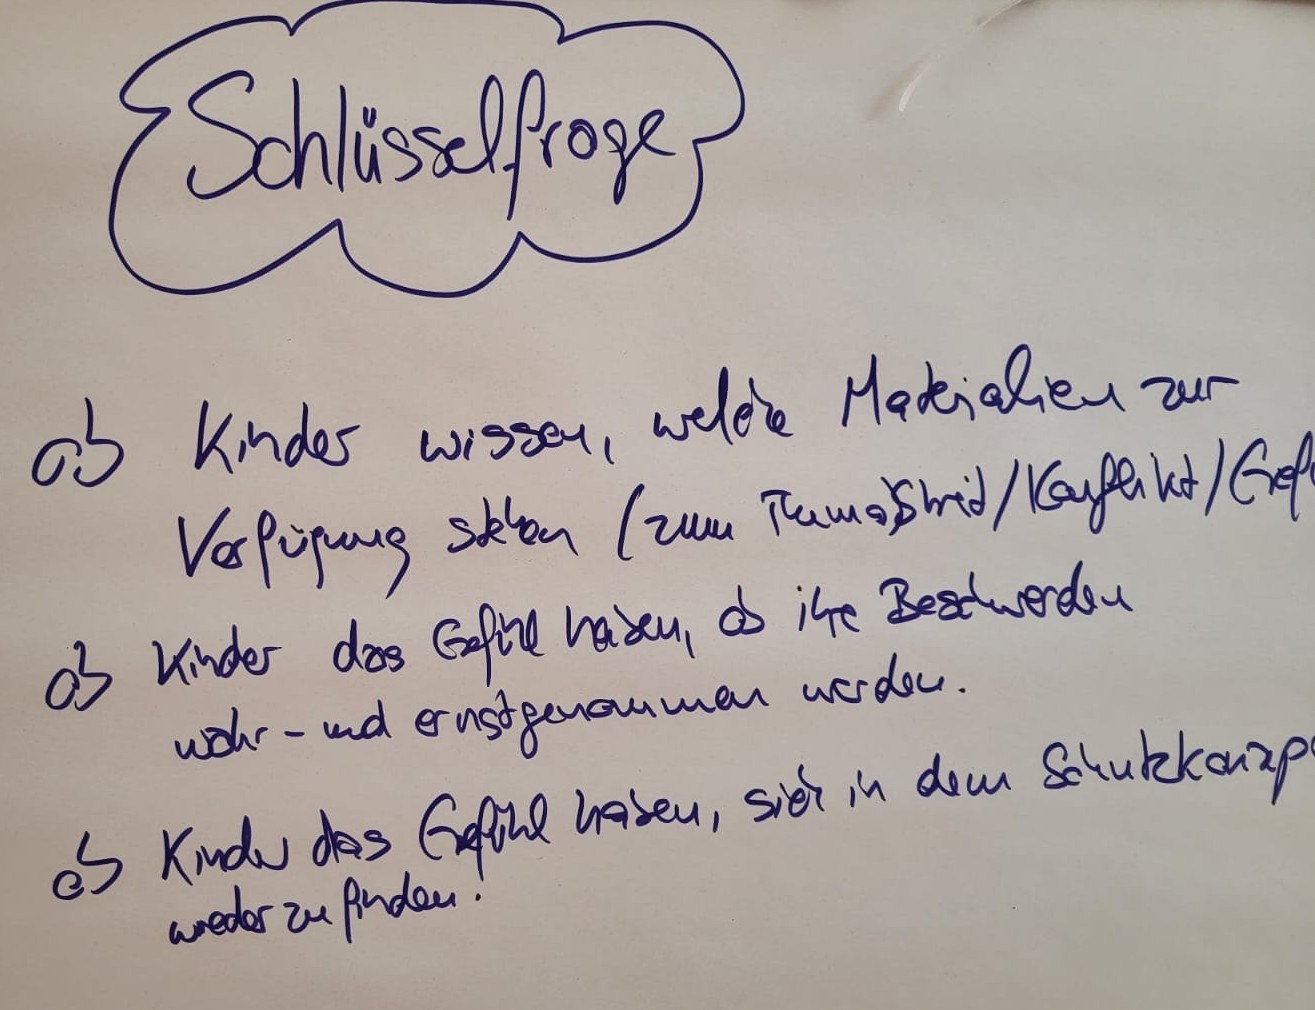 Schlüsselfrage
ob Kinder wissen, welche Materialien zur
Verfügung stehen (zum Thema Streit/Konflikt/Gef
ob Kinder das Gefühl haben, ob ihre Beschwerden
wahr- und ernstgenommen werden.
ob Kinder das Gefühl haben, sich in dem Schutzkonzep
wieder zu finden.